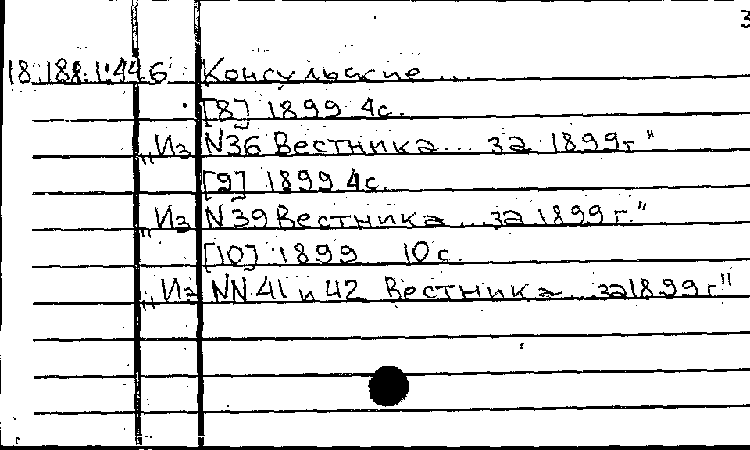 3
18.188.1:44.6 Консульские...
[8] 1899 4с.
„Из N36 Вестника... за 1899г"
[9] 1899 4с.
„Из N39 Вестника... за 1899г."
[10] 1899 10с.
„Из NN 41 и 42 Вестника... за 1899г"